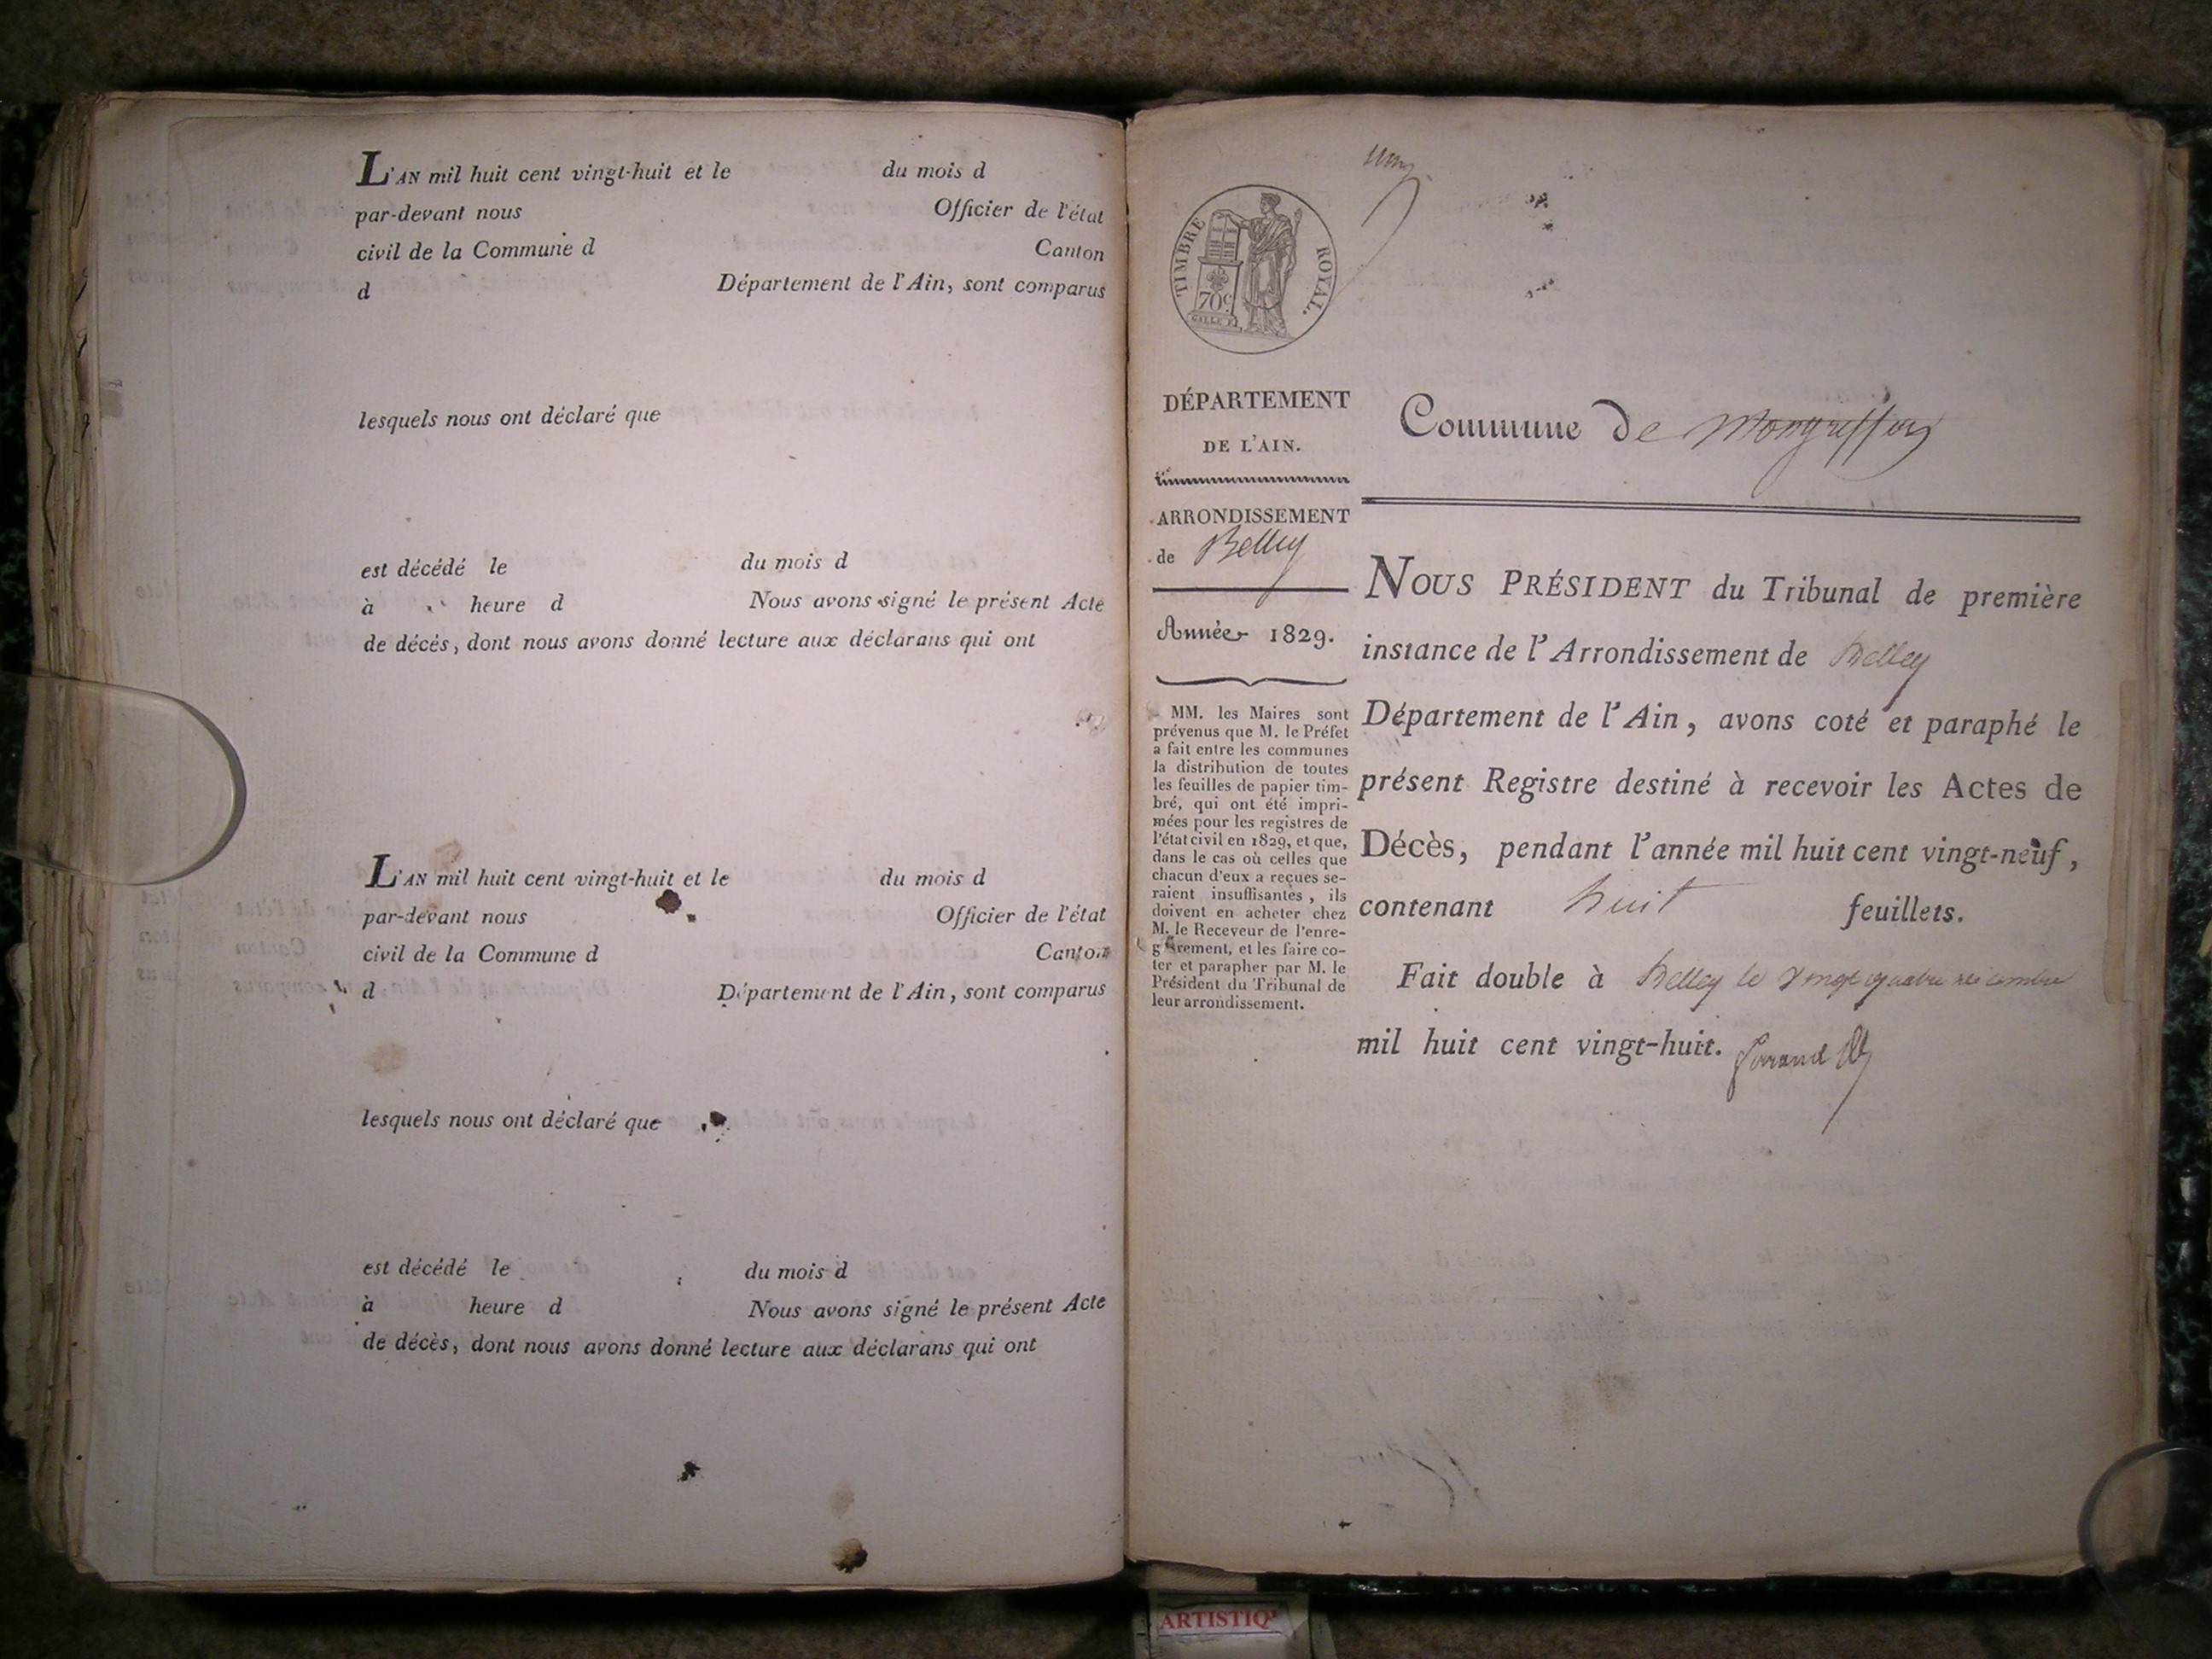 L'AN mil huit cent vingt-huit et le du mois d
par-devant nous Officier de l'état
civil de la Commune d Canton
d Département de l'Ain, sont comparus
lesquels nous ont déclaré que
est décédé le du mois d
à heure d Nous avons signé le présent Acte
de décés, dont nous avons donné lecture aux déclarans qui ont
L'AN mil huit cent vingt-huit et le du mois d
par-devant nous Officier de l'état
civil de la Commune d Canton
d Département de l'Ain, sont comparus
lesquels nous ont déclaré que
est décédé le du mois d
à heure d Nous avons signé le présent Acte
de décès, dont nous avons donné lecture aux déclarans qui ont
TIMBRE ROYAL.
70c
DÉPARTEMENT
DE L'AIN.
ARRONDISSEMENT
de Belley
Année 1829.
MM. les Maires sont
prévenus que M. le Préfet
a fait entre les communes
la distribution de toutes
les feuilles de papier tim-
bré, qui ont été impri-
mées pour les registres de
l'état civil en 1829, et que,
dans le cas où celles que
chacun d'eux a reçues se-
raient insuffisantes, ils
doivent en acheter chez
M. le Receveur de l'enre-
gistrement, et les faire co-
ter et parapher par M. le
Président du Tribunal de
leur arrondissement.
Commune de
NOUS PRÉSIDENT du Tribunal de première
instance de l'Arrondissement de Belley
Département de l'Ain, avons coté et paraphé le
présent Registre destiné à recevoir les Actes de
Décès, pendant l'année mil huit cent vingt-neuf,
contenant huit feuillets.
Fait double à Belley le vingt quatre décembre
mil huit cent vingt-huit.
ARTISTIQ